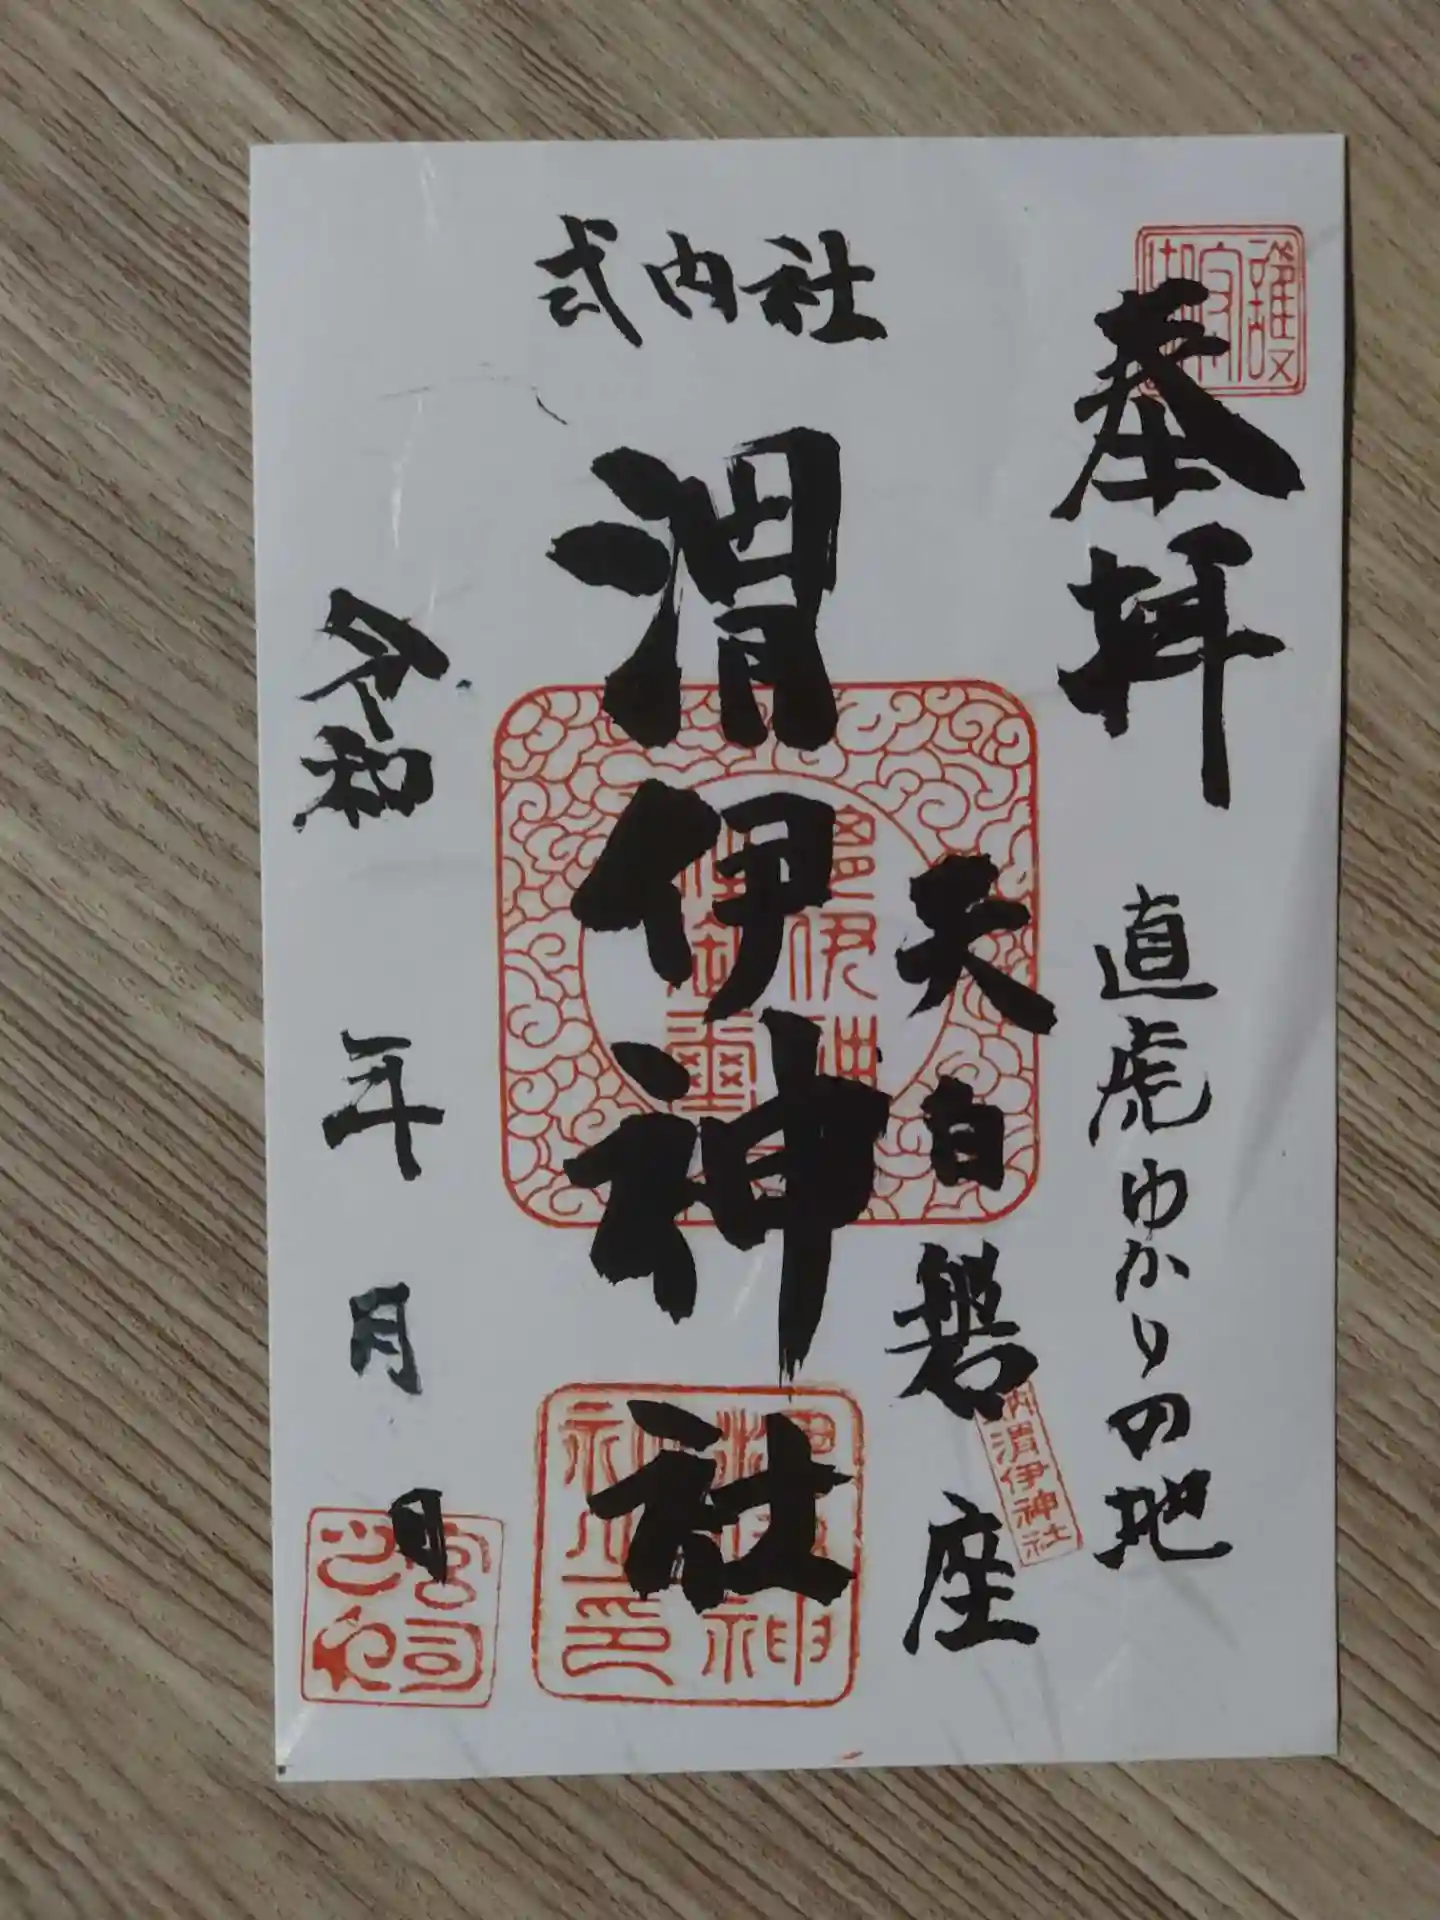 奉拝
直虎ゆかりの地
天白磐座
式内社
渭伊神社
令和 年 月 日
渭伊神社
宮司之印